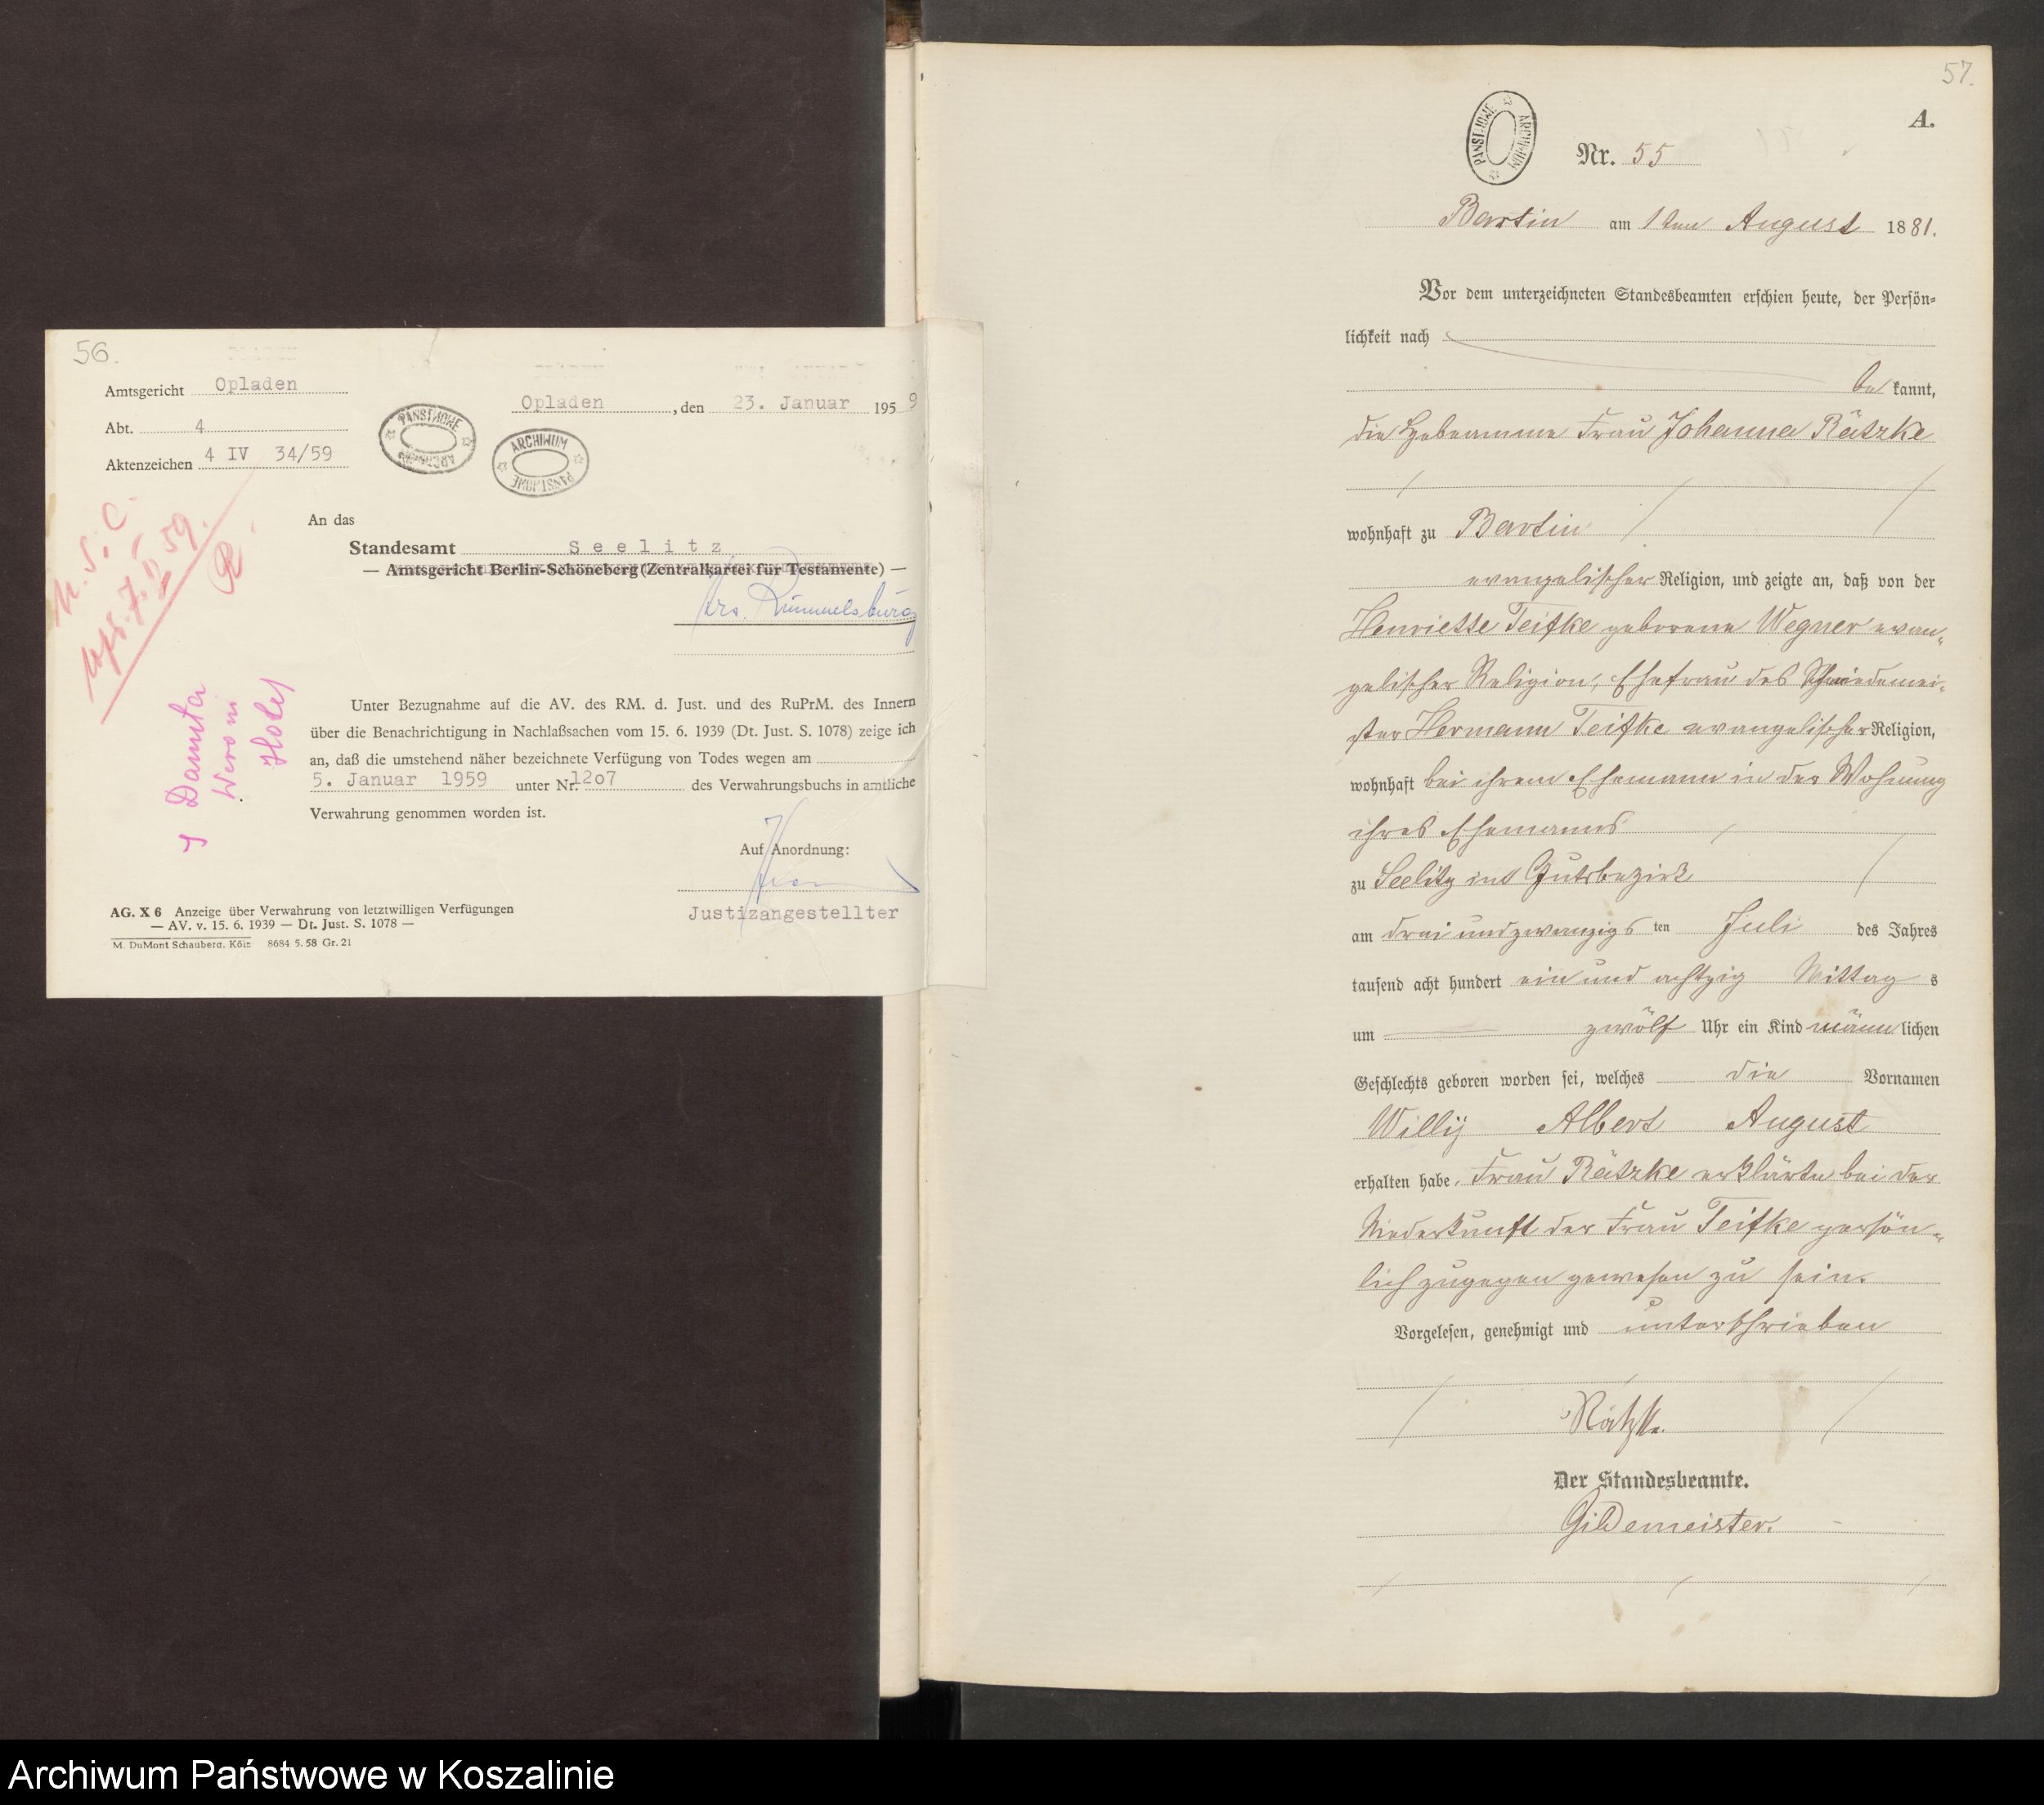 56.
Amtsgericht Opladen
Abt. 4
Aktenzeichen 4 IV 34/59
Opladen, den 23. Januar 1959
PAŃSTWOWE ARCHIWUM
ARCHIWUM PAŃSTWOWE
An das
Standesamt Seelitz
— Amtsgericht Berlin-Schöneberg (Zentralkartei für Testamente) —
Krs. Rummelsburg
Unter Bezugnahme auf die AV. des RM. d. Just. und des RuPrM. des Innern
über die Benachrichtigung in Nachlaßsachen vom 15. 6. 1939 (Dt. Just. S. 1078) zeige ich
an, daß die umstehend näher bezeichnete Verfügung von Todes wegen am
5. Januar 1959 unter Nr. 12o7 des Verwahrungsbuchs in amtliche
Verwahrung genommen worden ist.
Auf Anordnung:
Justizangestellter
AG. X 6 Anzeige über Verwahrung von letztwilligen Verfügungen
— AV. v. 15. 6. 1939 — Dt. Just. S. 1078 —
M. DuMont Schauberg, Köln 8684 5. 58 Gr. 21
57.
A.
PAŃSTWOWE ARCHIWUM
Nr. 55
Bartin am 1ten August 1881.
Vor dem unterzeichneten Standesbeamten erschien heute, der Persön-
lichkeit nach
bekannt,
die Hebeamme Frau Johanna Rätzke
wohnhaft zu Bartin
evangelischer Religion, und zeigte an, daß von der
Henriette Teifke geborene Wegner evan-
gelischer Religion, Ehefrau des Schmiedemei-
ster Hermann Teifke evangelischer Religion,
wohnhaft bei ihrem Ehemann in der Wohnung
ihres Ehemanns
zu Seelitz im Gutsbezirk
am drei und zwanzigsten Juli des Jahres
tausend acht hundert ein und achtzig Mittags
um zwölf Uhr ein Kind männlichen
Geschlechts geboren worden sei, welches die Vornamen
Willy Albert August
erhalten habe. Frau Rätzke erklärte bei der
Niederkunft der Frau Teifke persön-
lich zugegen gewesen zu sein.
Vorgelesen, genehmigt und unterschrieben
Rätzke.
Der Standesbeamte.
Gildemeister.
Archiwum Państwowe w Koszalinie